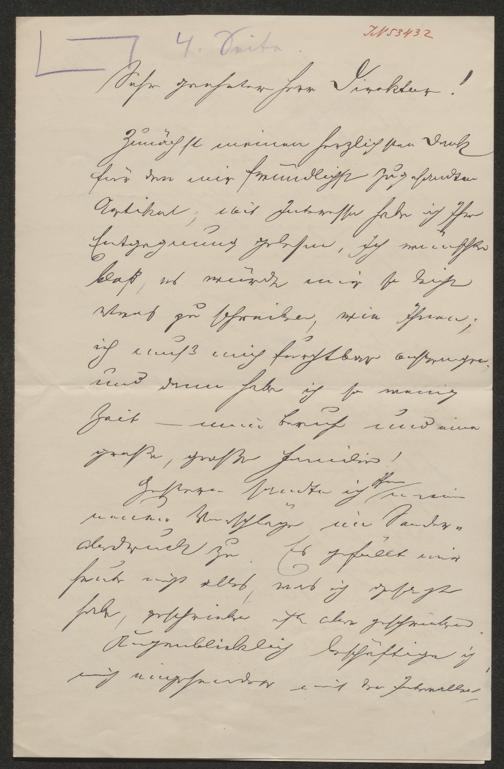 4. Seite.
IN 53432
Sehr geehrter Herr Direktor!
Zunächst meinen herzlichsten Dank
für den mir freundlichst zugesandten
Artikel; mit Interesse habe ich Ihre
Entgegnung gelesen, ich wünschte
bloß, es würde mir so leicht
etwas zu schreiben, wie Ihnen;
ich muß mich furchtbar anstrengen
und dann habe ich so wenig
Zeit — mein Beruf und eine
große, große Familie!
Gestern sandte ich Ihnen meine
neuen Vorschläge im Sonder-
abdruck zu. Es gefällt mir
heute nicht alles, was ich gesagt
habe, geschrieben ist aber geschrieben.
Augenblicklich beschäftige ich
mich eingehender mit der